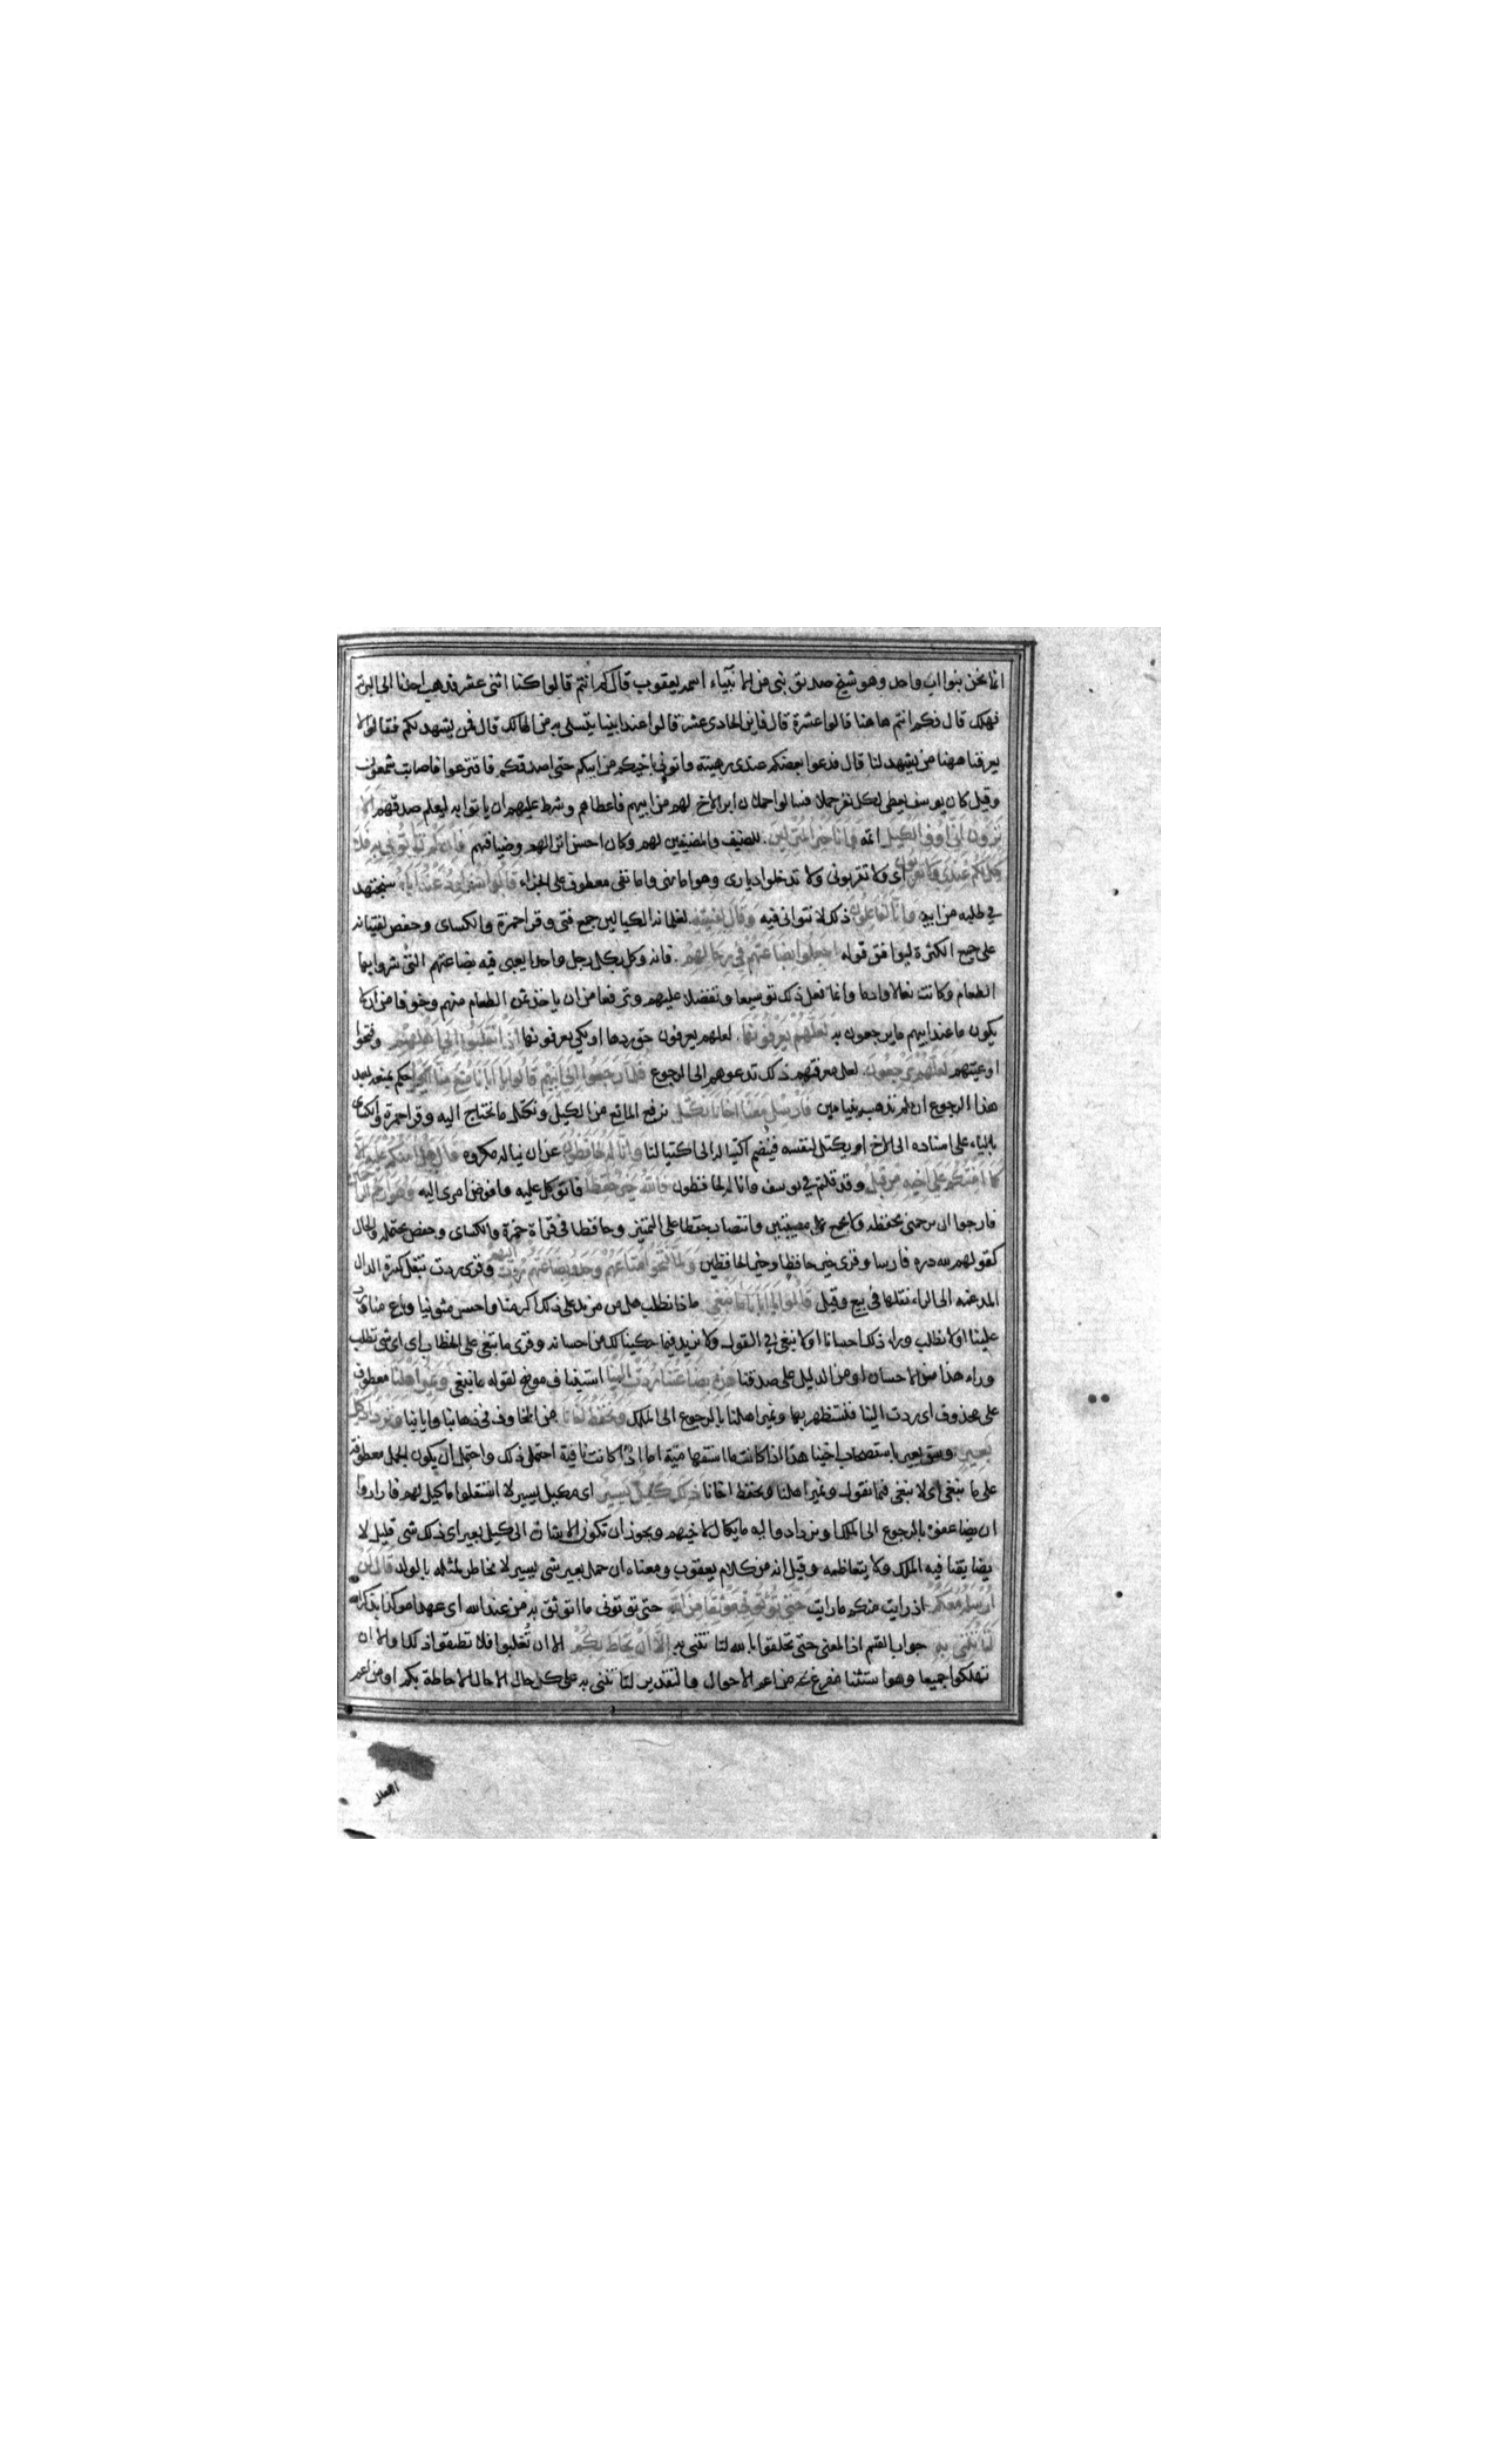 انما نحن بنوا اب واحد وهو شيخ صديق نبي من الانبياء اسمه يعقوب قال كم انتم قالوا كنا اثنى عشر فذهب احدنا الى البرية
فهلك قال فكم انتم هاهنا قالوا عشرة قال فاين الحادى عشر قالوا عند ابينا يتسلى به من الهالك قال فمن يشهد لكم فقالوا لا
يعرفنا ههنا من يشهد لنا قال فدعوا بعضكم عندى رهينة واتونى باخيكم من ابيكم حتى اصدقكم فاقترعوا فاصابت شمعون
وقيل كان يوسف يعطى لكل نفر حملا فسالوا حملا لاخ لهم من ابيهم فاعطاهم وشرط عليهم ان ياتوا به ليعلم صدقهم الا
ترون انى اوفى الكيل اتمه وانا خير المنزلين للضيف والمضيفين لهم وكان احسن انزالهم وضيافتهم فان لم تاتونى به فلا
كيل لكم عندى ولا تقربون اى ولا تقربونى ولا تدخلوا ديارى وهو اما نهى واما نفى معطوف على الجزاء قالوا سنراود عنه اباه سنجتهد
في طلبه من ابيه وانا لفاعلون ذلك لا نتوانى فيه وقال لفتيته لغلمانه الكيالين جمع فتى وقرا حمزة والكساى وحفص لفتيانه
على جمع الكثرة ليوافق قوله اجعلوا بضاعتهم فى رحالهم فانه وكل بكل رجل واحدا يعبى فيه بضاعتهم التى شروا بها
الطعام وكانت نعالا وادما وانما فعل ذلك توسيعا وتفضلا عليهم وترفعا من ان ياخذ ثمن الطعام منهم وخوفا من ان لا
يكون ما عند ابيهم ما يرجعون به لعلهم يعرفونها لعلهم يعرفون حق ردها او لكى يعرفونها اذا انقلبوا الى اهلهم وفتحوا
اوعيتهم لعلهم يرجعون لعل معرفتهم ذلك تدعوهم الى الرجوع فلما رجعوا الى ابيهم قالوا يا ابانا منع منا الكيل حكم بمنعه بعد
هذا الرجوع ان لم نذهب ببنيامين فارسل معنا اخانا نكتل نرفع المانع من الكيل ونكتل ما نحتاج اليه وقرا حمزة والكساى
بالياء على اسناده الى الاخ او يكتل لنفسه فينضم اكتياله الى اكتيالنا وانا له لحافظون عن ان يناله مكروه قال هل امنكم عليه الا
كما امنتكم على اخيه من قبل وقد قلتم في يوسف وانا له لحافظون فالله خير حفظا فاتوكل عليه وافوض امرى اليه وهو ارحم الراحمين
فارجوا ان يرحمنى بحفظه ولا يجمع على مصيبتين وانتصاب حفظا على التمييز وحافظا فى قراة حمزة والكساى وحفص يحتمله والحال
كقولهم لله دره فارسا وقرى خير حافظا وخير الحافظين ولما فتحوا متاعهم وجدوا بضاعتهم ردت اليهم وقرى ردت بنقل كسرة الدال
المدغمه الى الراء نقلها فى بيع وقيل قالوا يا ابانا ما نبغى ماذا نطلب هل من مزيد على ذلك اكرمنا واحسن مثوانا وباع منا ورد
علينا او لا نطلب وراء ذلك احسانا او لا نبغى في القول ولا نزيد فيما حكينا لك من احسانه وقرى ما تبغى على الخطاب اى اى شى تطلب
وراء هذا من الاحسان او من الدليل على صدقنا هذه بضاعتنا ردت الينا استيناف موضح لقوله ما نبغى ونمير اهلنا معطوف
على محذوف اى ردت الينا فنستظهر بها ونمير اهلنا بالرجوع الى الملك ونحفظ اخانا من المخاوف فى ذهابنا وايابنا ونزداد كيل
بعير وسق بعير باستصحاب اخينا هذا اذا كانت ما استفهامية اما اذا كانت نافية احتمل ذلك واحتمل ان يكون الجمل معطوفة
على ما نبغى اى لا نبغى فيما نقول ونمير اهلنا ونحفظ اخانا ذلك كيل يسير اى مكيل يسير لا استقلوا ما كيل لهم فارادوا
ان يضاعفوه بالرجوع الى الملك او يزدادوا اليه ما يكال لاخيهم ويجوز ان تكون الاشارة الى كيل بعير اى ذلك شى قليل لا
يضايقنا فيه الملك ولا يتعاظمه وقيل انه من كلام يعقوب ومعناه ان حمل بعير شى يسير لا يخاطر لمثله بالولد قال لن
ارسله معكم اذ رايت منكم ما رايت حتى تؤتون موثقا من الله حتى تؤتونى ما اتوثق به من عند الله اى عهدا موكدا بذكر الله
لتاتننى به جواب القسم اذ المعنى حتى تحلفوا بالله لتاتننى به الا ان يحاط بكم الا ان تغلبوا فلا تطيقوا ذلك او الا ان
تهلكوا جميعا وهو استثنا مفرغ من اعم الاحوال والتقدير لتاتننى به على كل حال الا حال الاحاطة بكم او من اعم